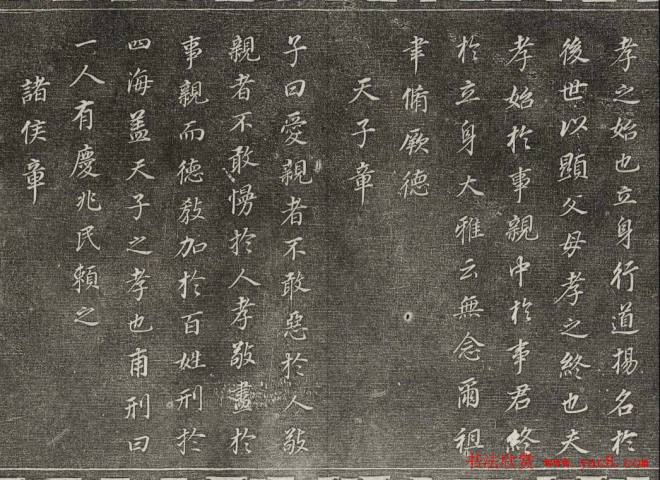 孝之始也立身行道揚名於
後世以顯父母孝之終也夫
孝始於事親中於事君終
於立身大雅云無念爾祖
聿脩厥德
天子章
子曰愛親者不敢惡於人敬
親者不敢慢於人孝敬盡於
事親而德教加於百姓刑於
四海盖天子之孝也甫刑曰
一人有慶兆民賴之
諸侯章
书法欣赏 www.yac8.com